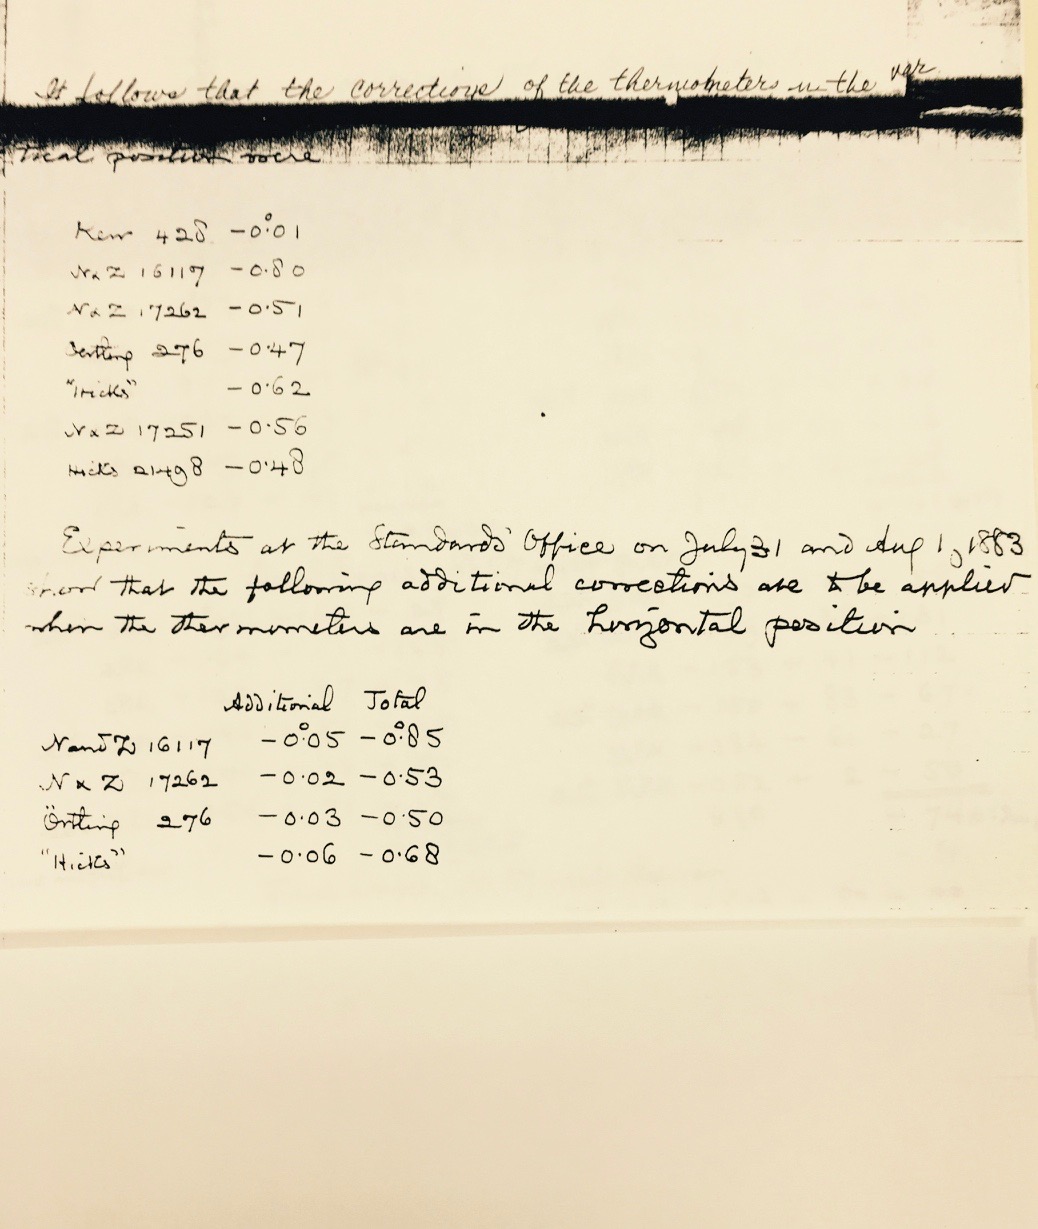 It follows that the corrections of the thermometers in the ver
tical position were
Kew 428 -0°.01
N & Z 16117 -0.80
N & Z 17262 -0.51
Oertling 276 -0.47
"Hicks" -0.62
N & Z 17251 -0.56
Hicks 21498 -0.48
Experiments at the Standards' Office on July 31 and Aug 1, 1883
show that the following additional corrections are to be applied
when the thermometers are in the horizontal position
Additional Total
N and Z 16117 -0°.05 -0°.85
N & Z 17262 -0.02 -0.53
Örtling 276 -0.03 -0.50
"Hicks" -0.06 -0.68